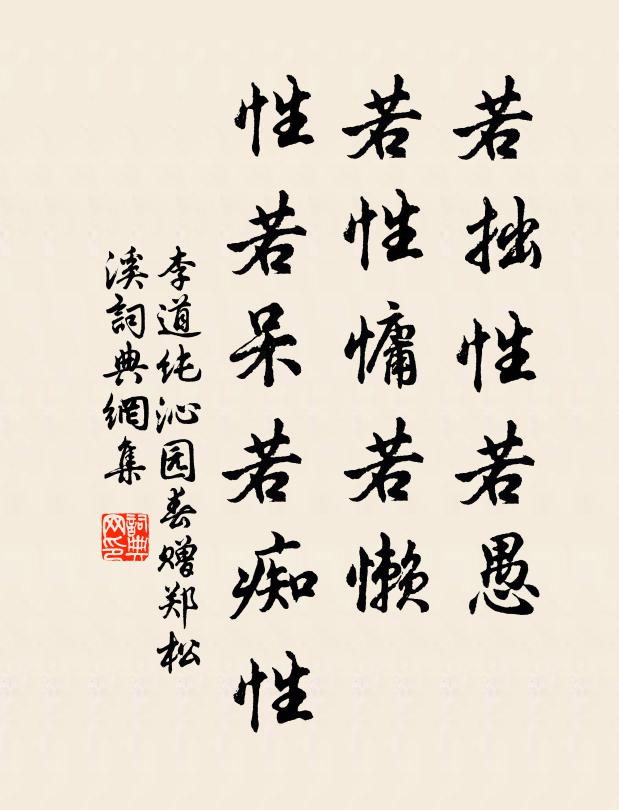 若拙性若愚
若性慵若懒
性若呆若痴性
李道纯沁园春赠郑松
溪詞典網集
詞典
网印